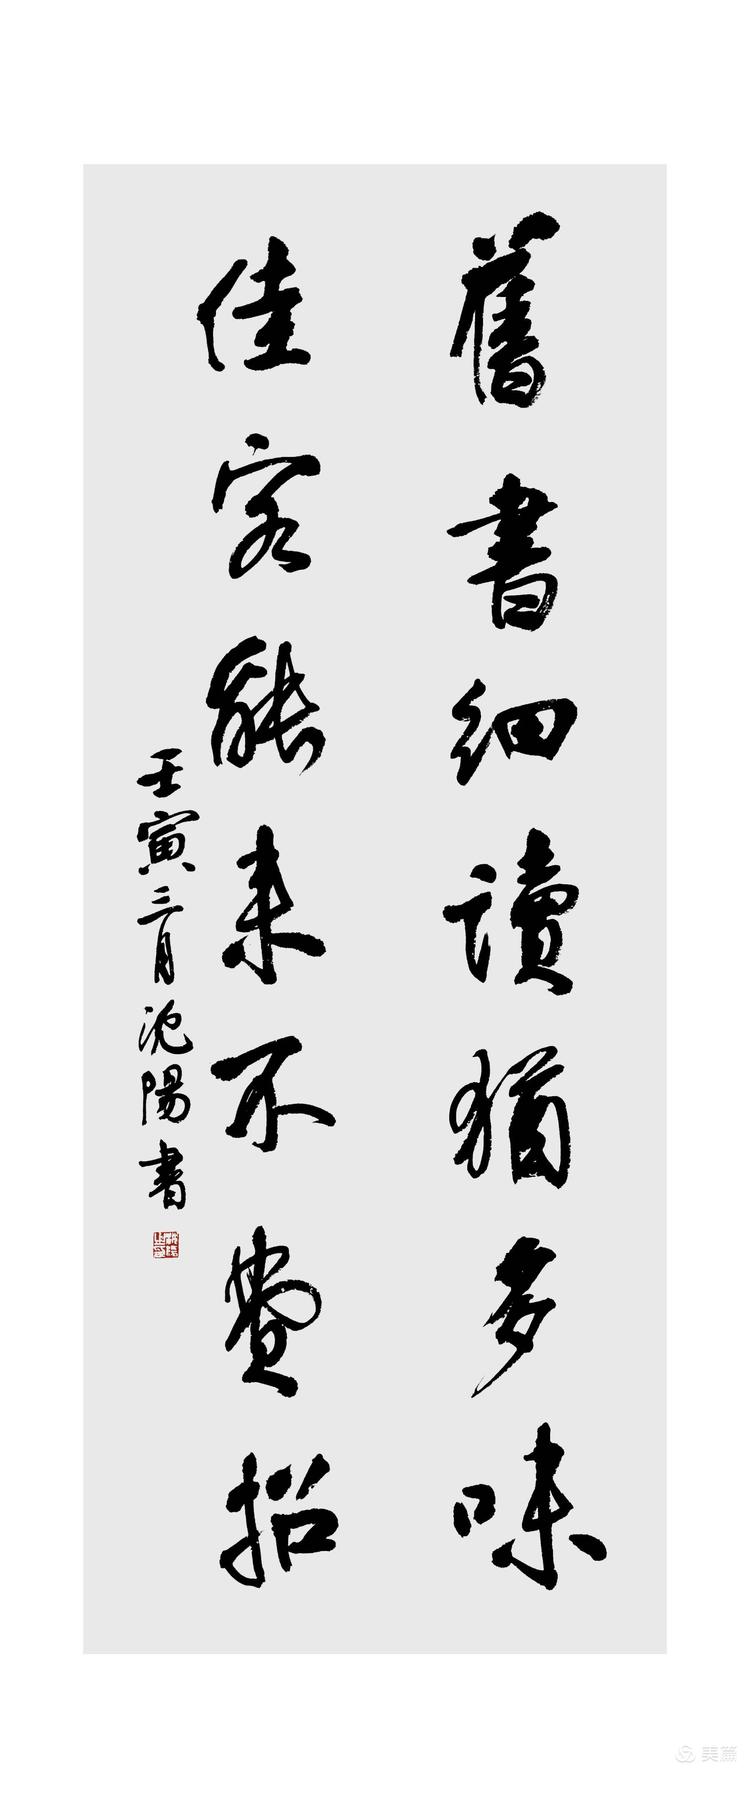 舊書細讀猶多味
佳客能来不費招
壬寅三月沈陽書
美篇